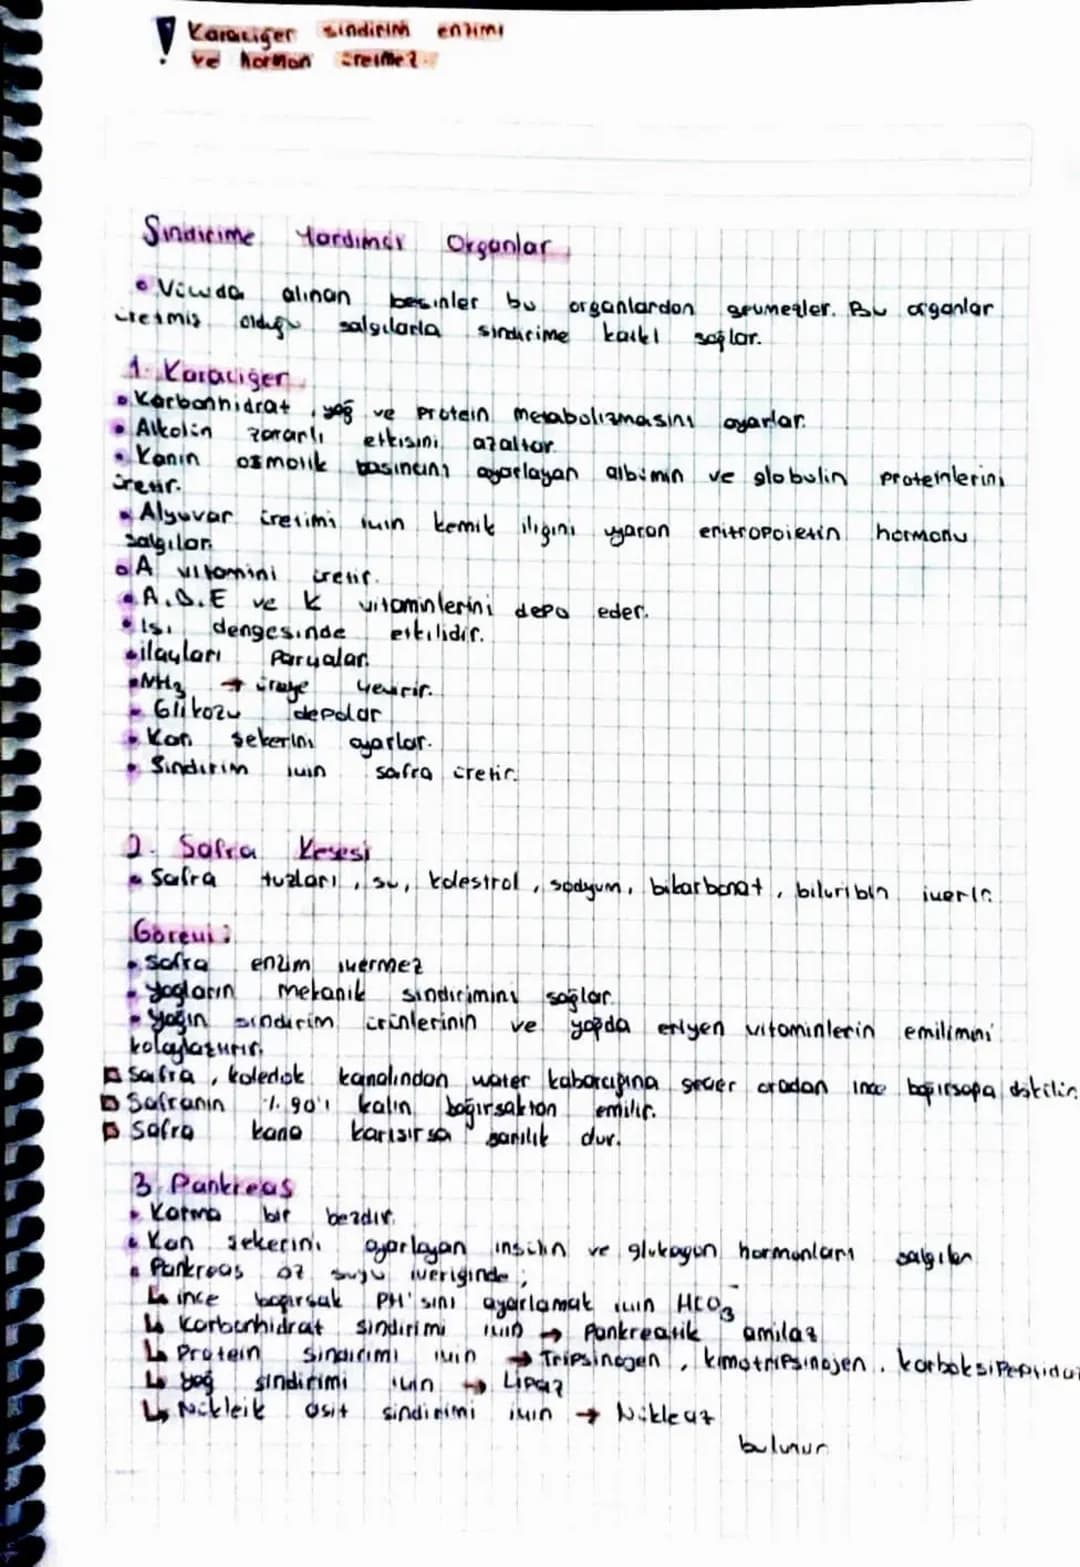 ! Karaciğer sindirim enzimi
ve hormon üretmez.
Sindirime Yardımcı Organlar
• Vücuda alınan besinler bu organlardan geçmezler. Bu organlar
üretmiş olduğu salgılarla sindirime katkı sağlar.
1. Karaciğer
• Karbonhidrat, yağ ve protein metabolizmasını ayarlar.
• Alkolün zararlı etkisini azaltır.
• Kanın osmotik basıncını ayarlayan albümin ve globulin proteinlerini
üretir.
• Alyuvar üretimi için kemik iliğini uyaran eritropoietin hormonu
salgılar.
• A vitamini üretir.
• A, D, E ve K vitaminlerini depo eder.
• Isı dengesinde etkilidir.
• ilaçları parçalar.
• NH₃ → üreye çevirir.
• Glikozu depolar
• Kan şekerini ayarlar.
• Sindirim için safra üretir.
2. Safra Kesesi
• Safra tuzları, su, kolestrol, sodyum, bikarbonat, biluribin içerir.
Görevi:
• Safra enzim içermez
• Yağların mekanik sindirimini sağlar.
• Yağın sindirim ürünlerinin ve yağda eriyen vitaminlerin emilimini
kolaylaştırır.
Safra, koledok kanalından water kabarcığına geçer oradan ince bağırsağa dökülür.
Safranın %90'ı kalın bağırsaktan emilir.
Safra kana karışırsa sarılık olur.
3. Pankreas
• Karma bir bezdir.
• Kan şekerini ayarlayan insülin ve glukagon hormonları salgılar
• Pankreas öz suyu içeriğinde;
↳ ince bağırsak PH'sını ayarlamak için HCO₃⁻
↳ Karbonhidrat sindirimi için → Pankreatik amilaz
↳ Protein sindirimi için → Tripsinojen, kimotripsinojen, karboksipeptidaz
↳ Yağ sindirimi için → Lipaz
↳ Nükleik asit sindirimi için → Nükleaz
bulunur